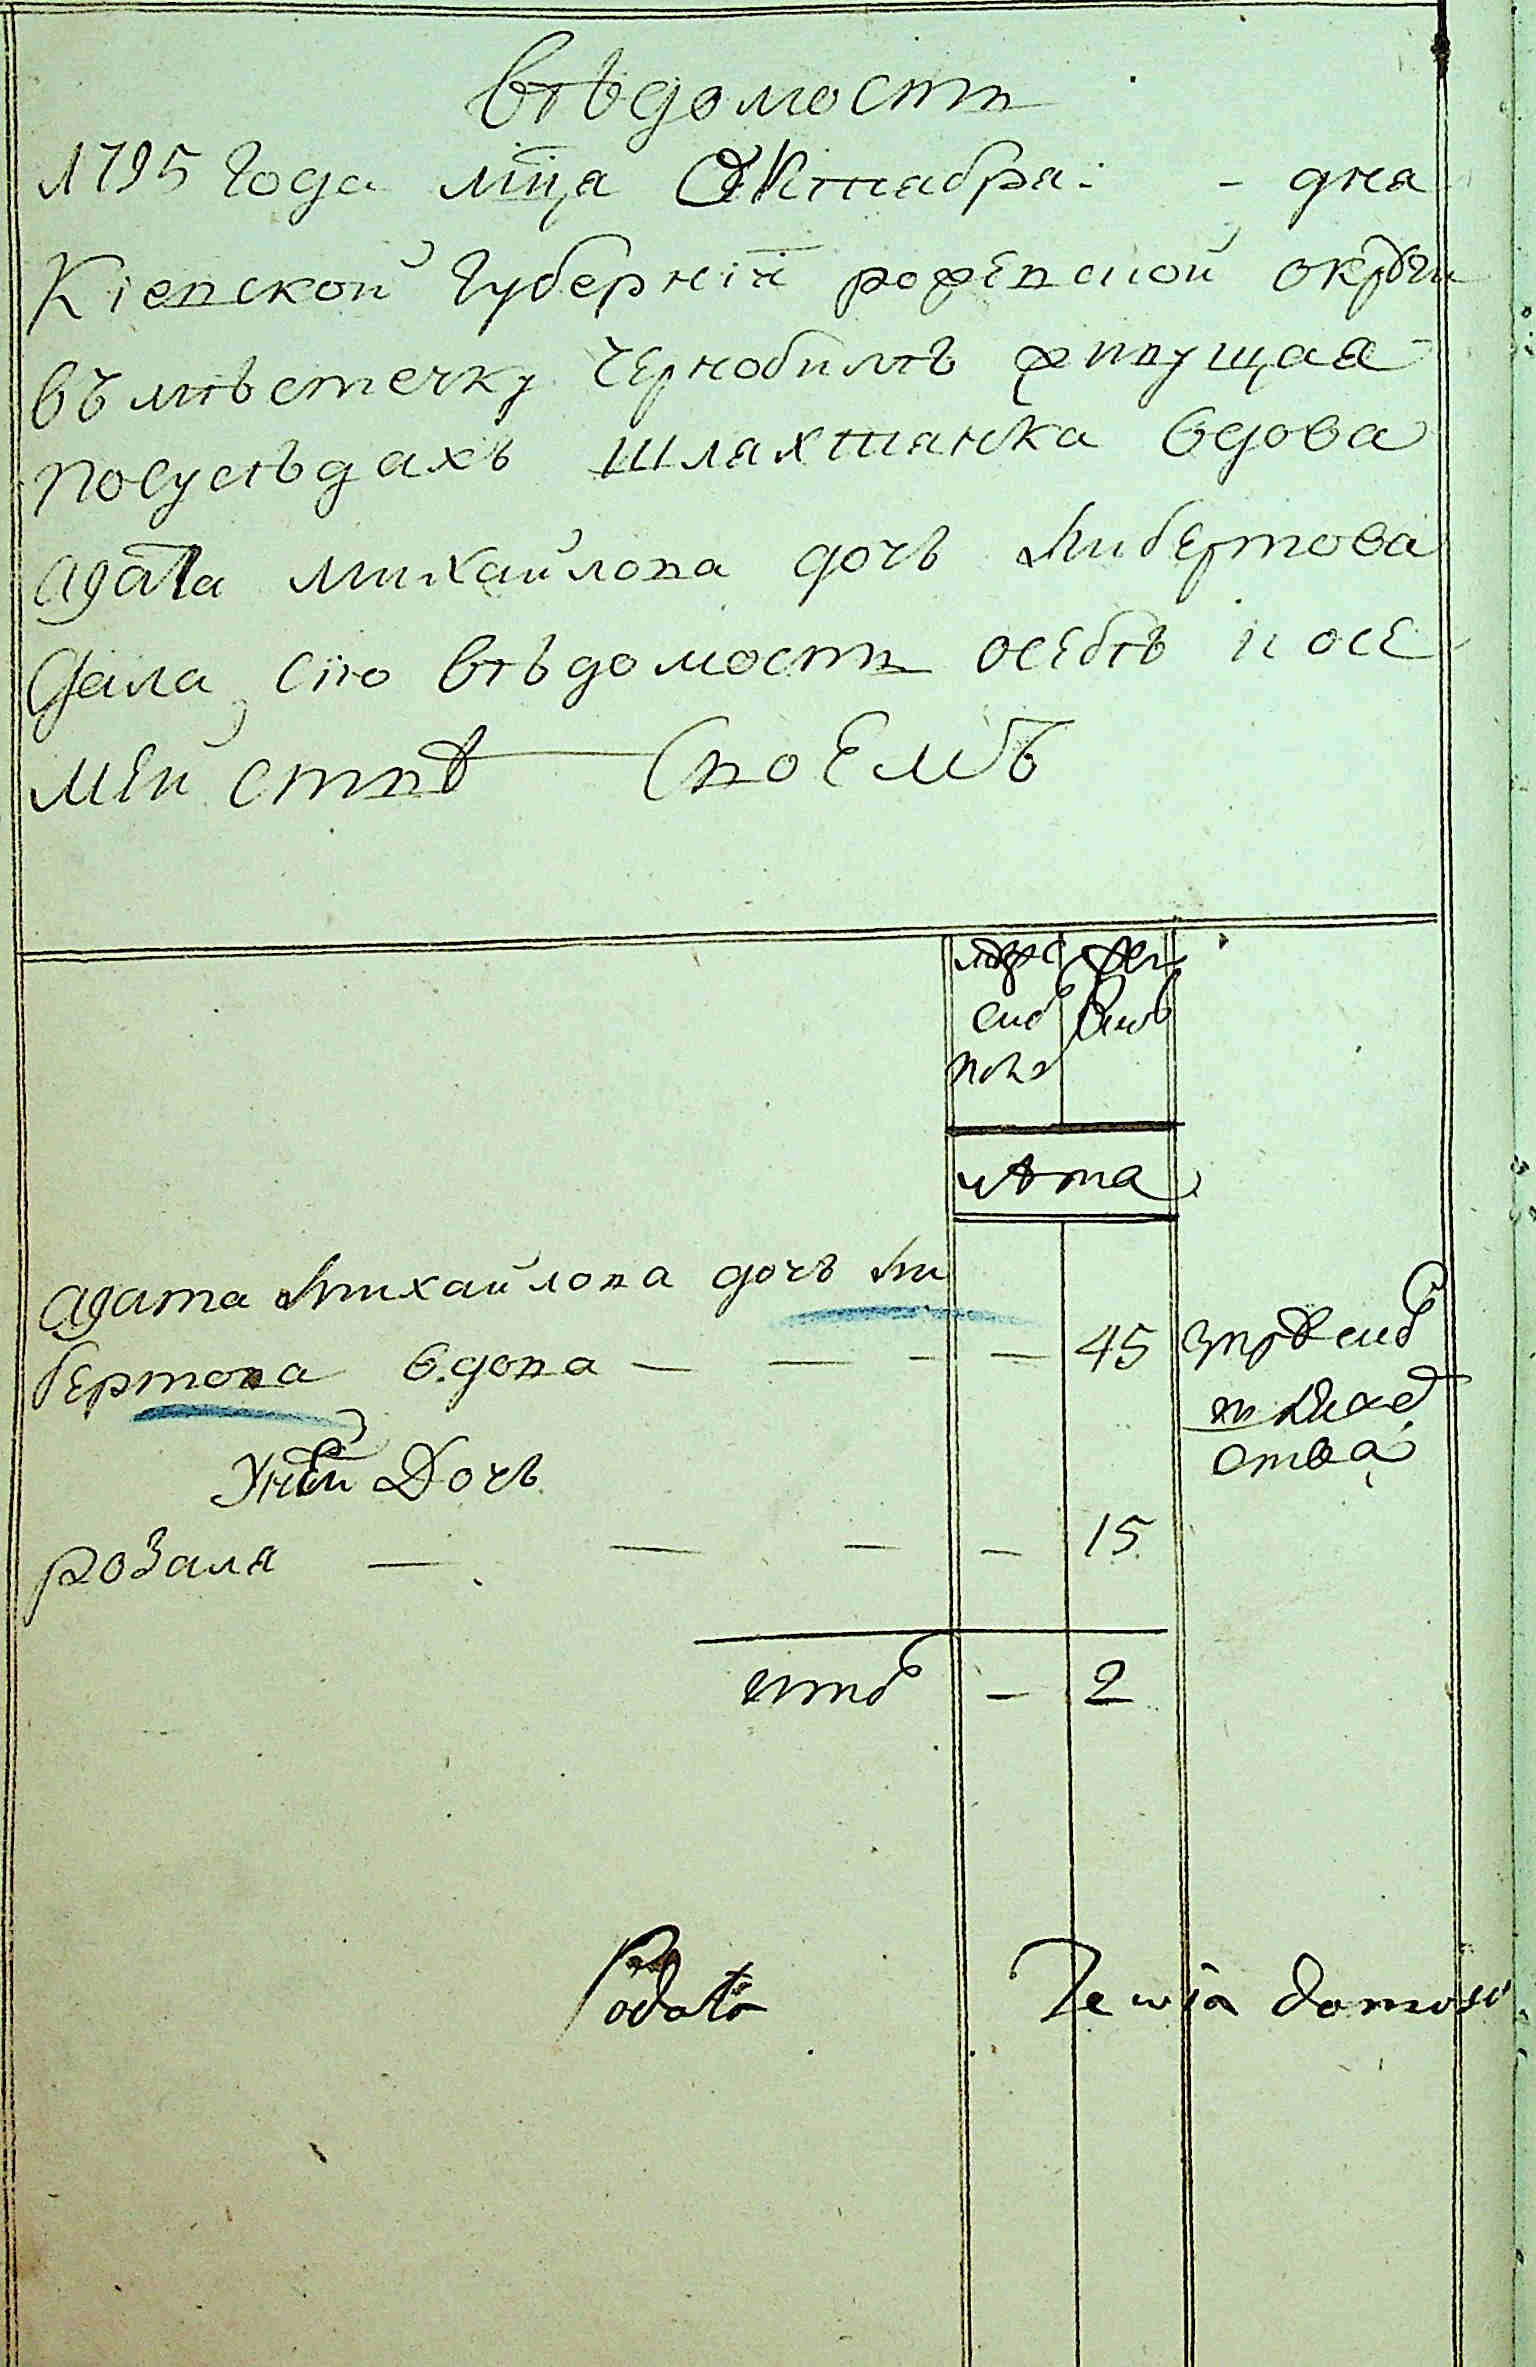 вѣдомость
1795 года мца Октября - дня
Кіевской губерніи рожевской округи
въ мѣстечку Чернобилѣ живущая
посусѣдахъ шляхтянка вдова
Агата михайлова дочь Либертова
дала сію вѣдомость осебѣ и осе
мействѣ своемъ
женс
лѣта
Агата Михайлова дочь Ли
бертова вдова — — — — 45
Уней Дочь
розаля — — — — 15
ито — 2
Podała Te wia domość